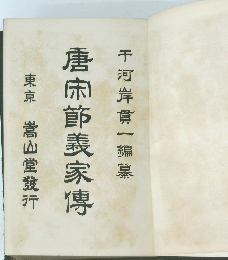 干河岸貫一編纂
唐宋節義家傳
東京 嵩山堂發行